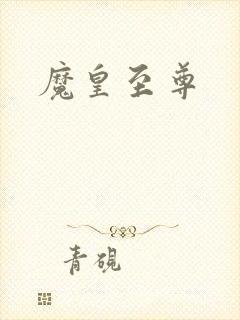 魔皇至尊
青砚